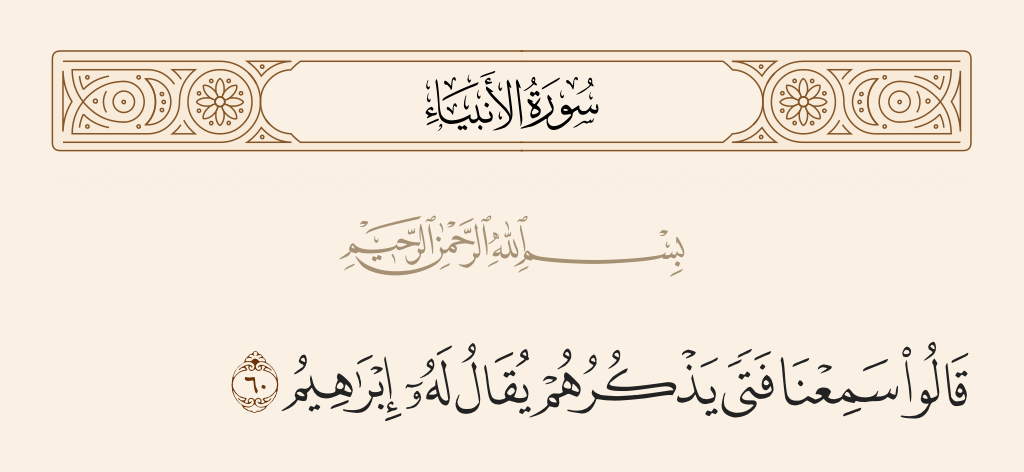 سُورَةُ الأَنبِيَاءِ
بِسْمِ ٱللَّهِ ٱلرَّحْمَٰنِ ٱلرَّحِيمِ
قَالُوا۟ سَمِعْنَا فَتًى يَذْكُرُهُمْ يُقَالُ لَهُۥٓ إِبْرَٰهِيمُ ٦٠